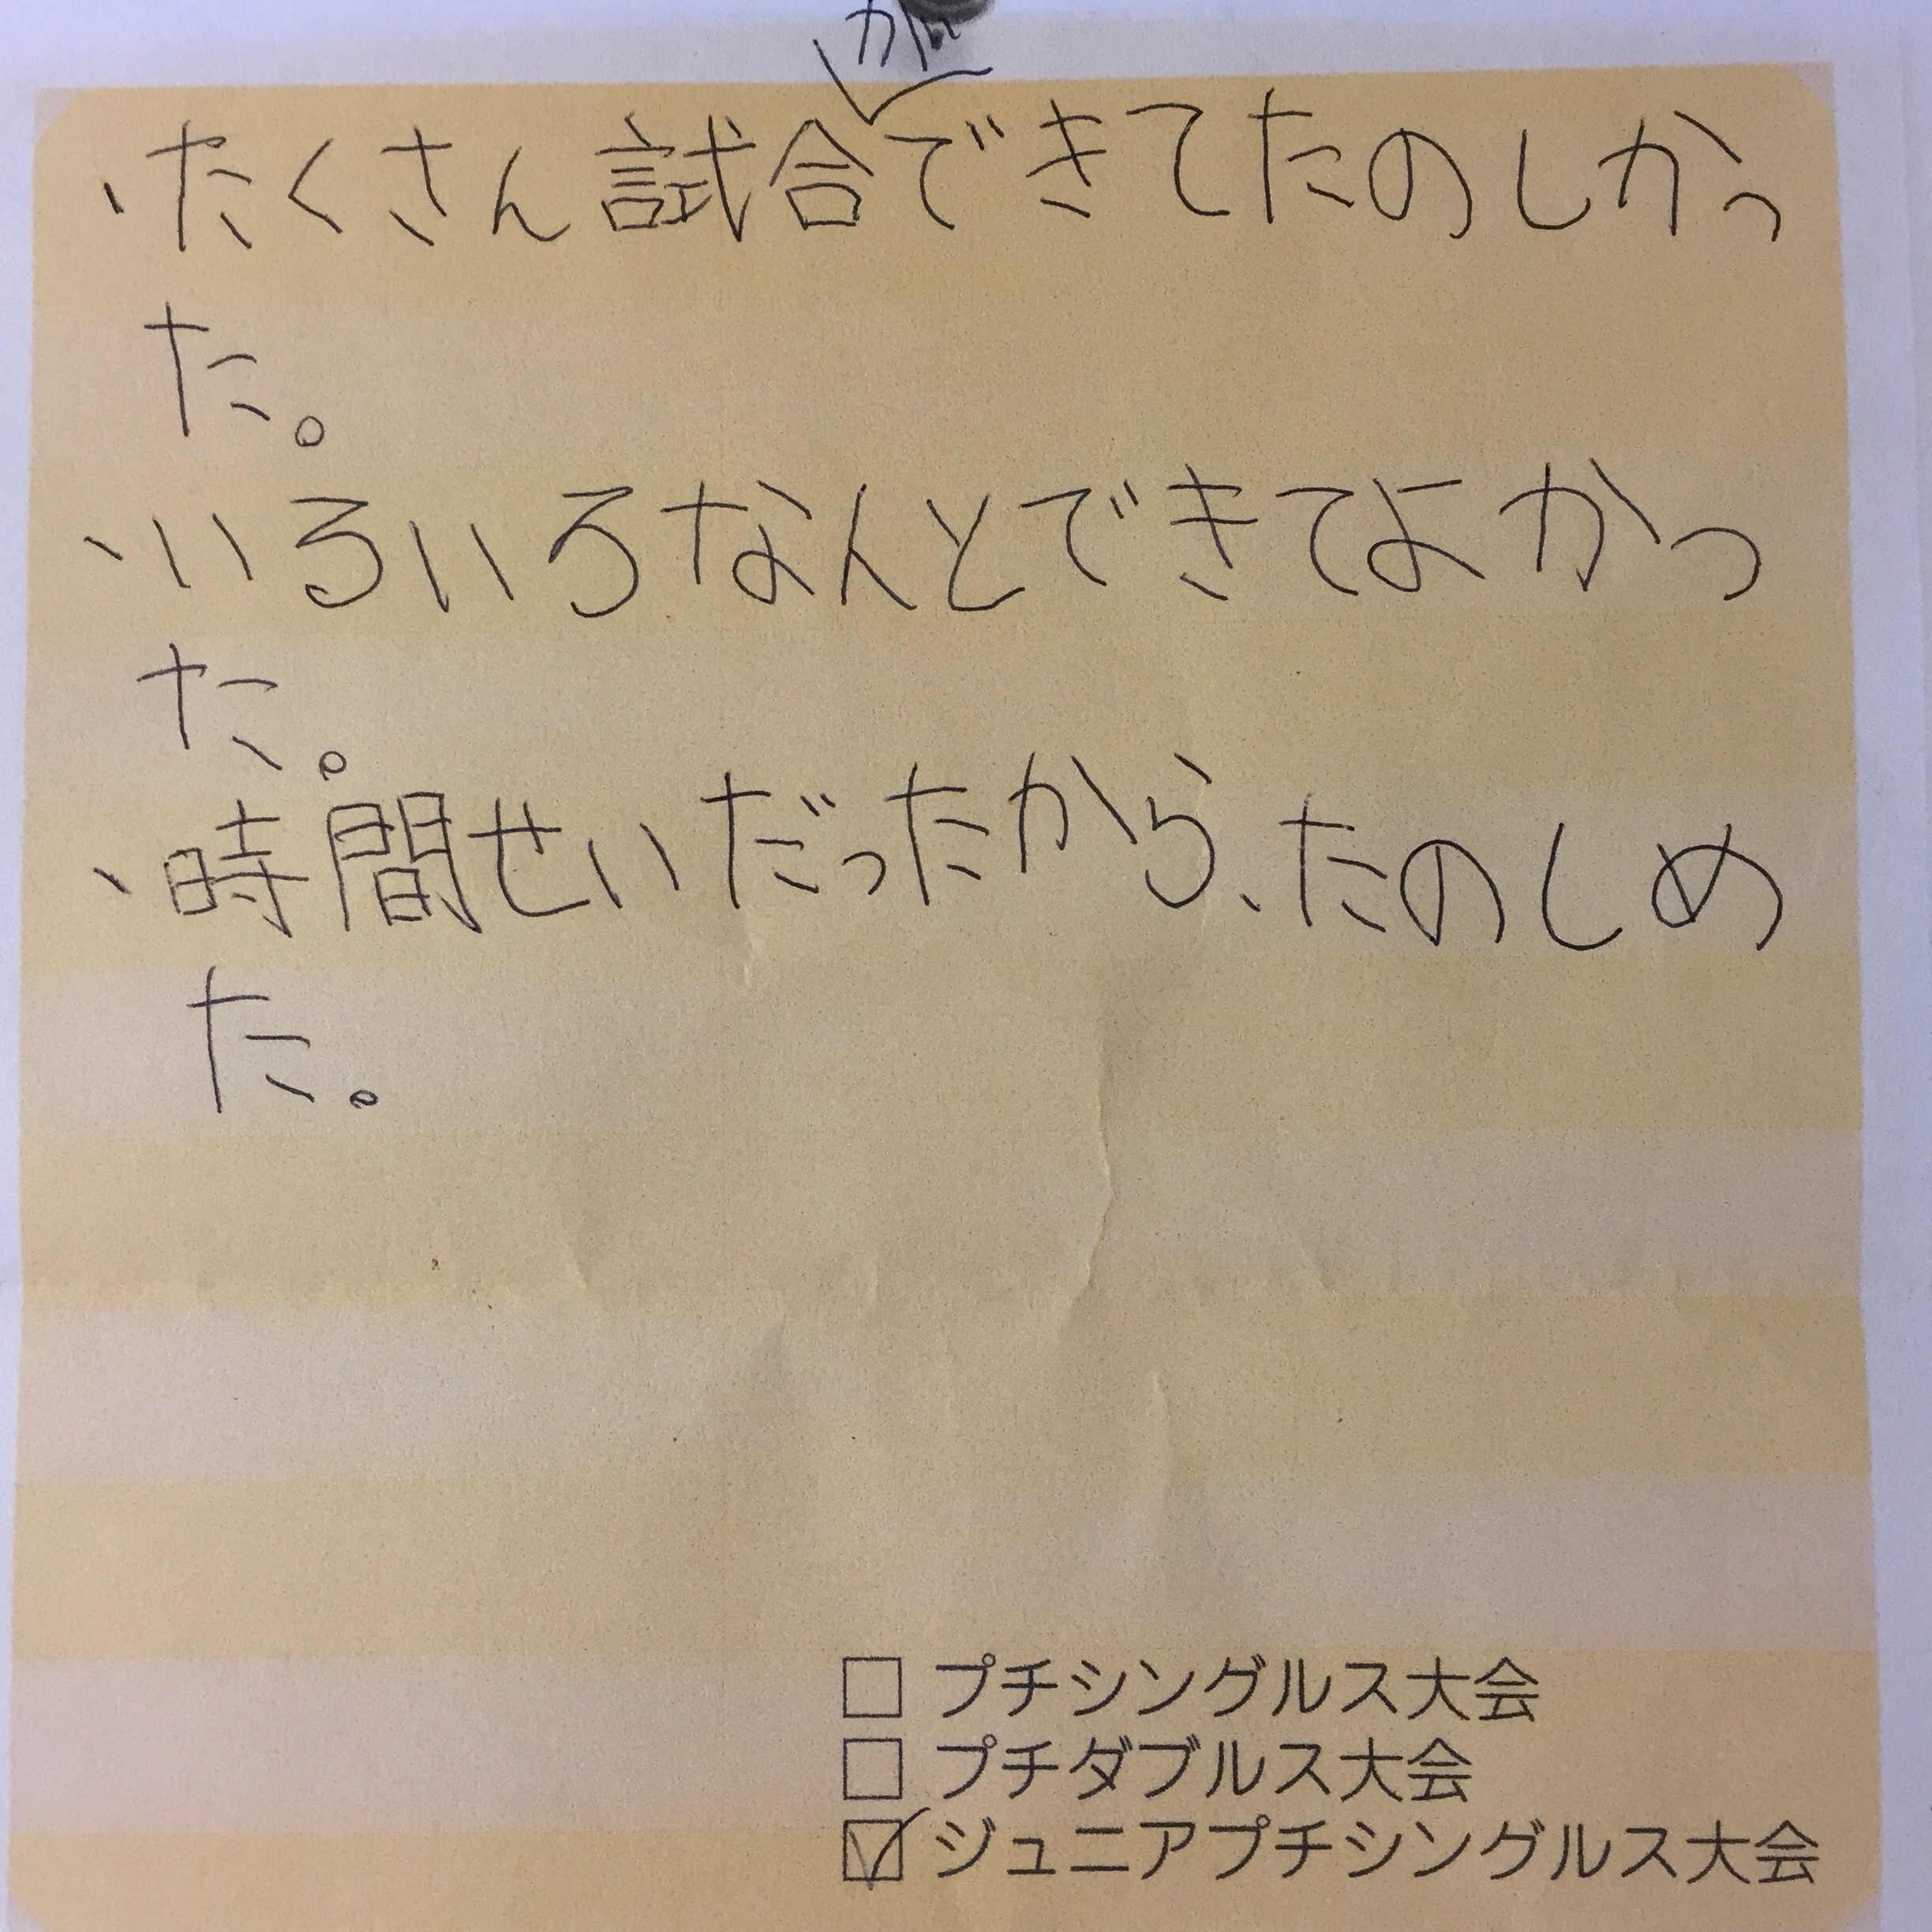 が
・たくさん試合できてたのしかっ
た。
・いろいろなんとできてよかっ
た。
・時間せいだったから、たのしめ
た。
□ プチシングルス大会
□ プチダブルス大会
☑ ジュニアプチシングルス大会